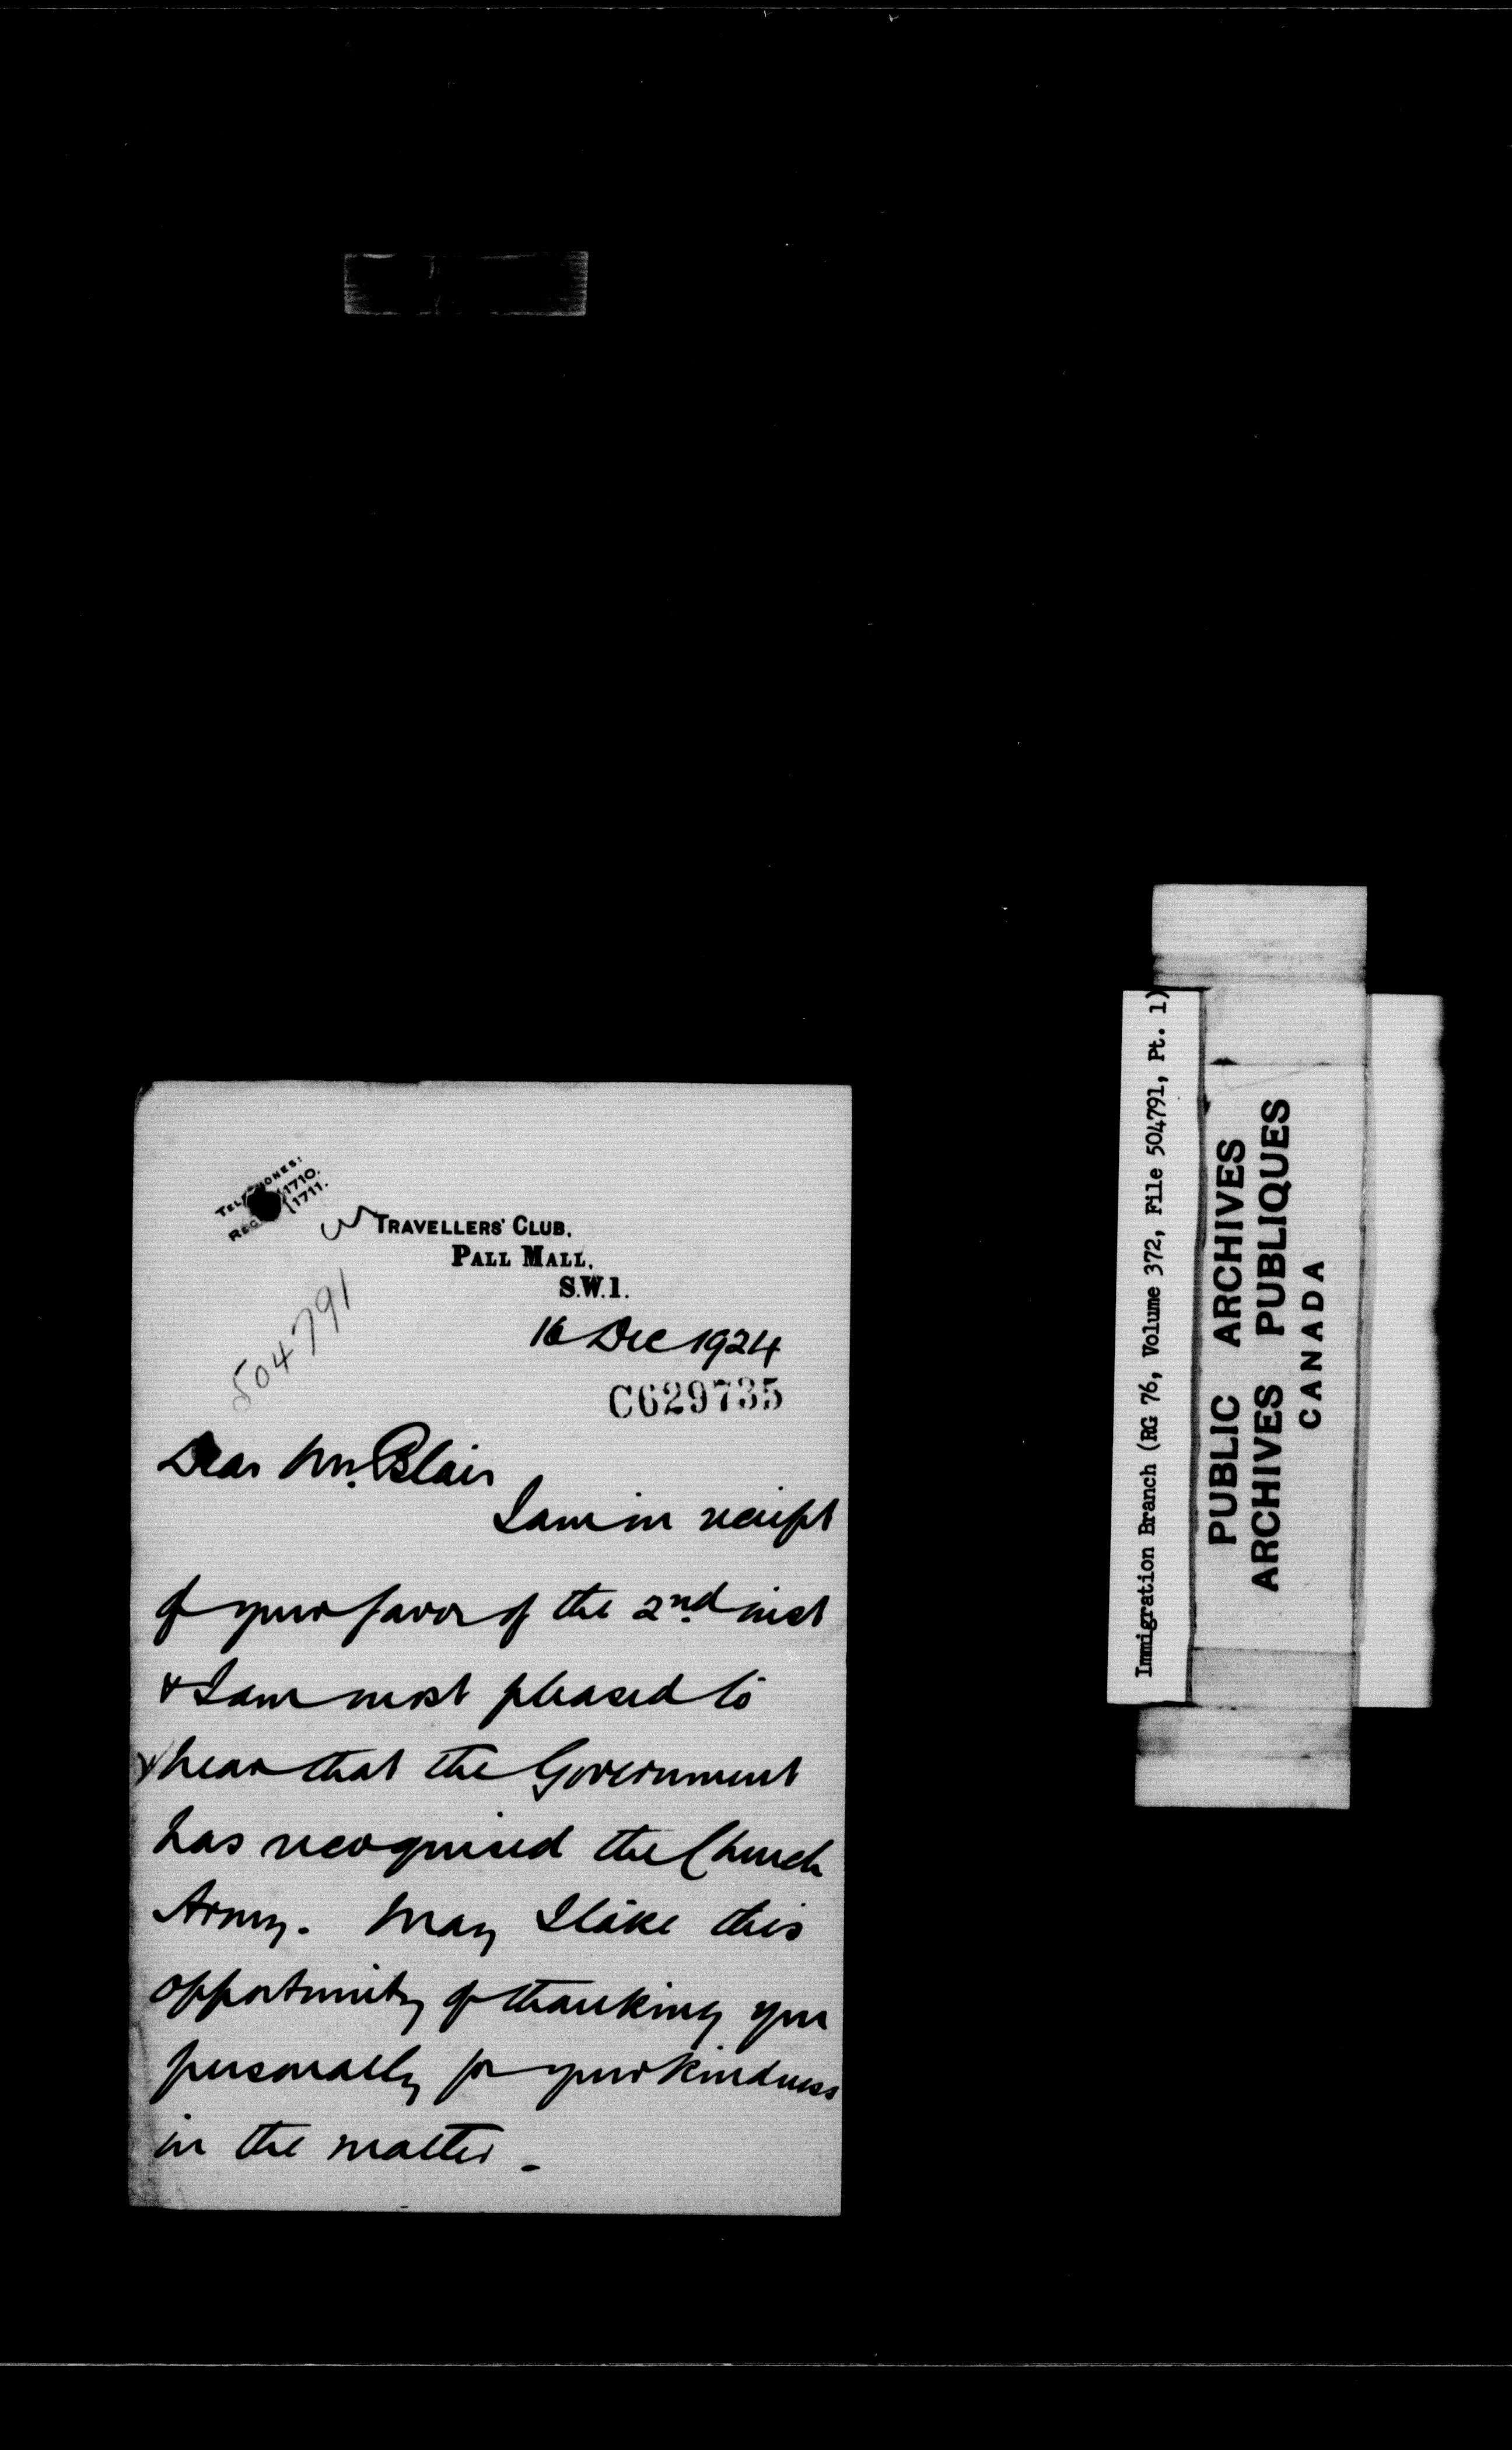 TELEPHONES:
REG 1710.
1711.
TRAVELLERS' CLUB,
PALL MALL,
S.W.1.
504791
16 Dec 1924
C629735
Dear Mr. Blair
I am in receipt
of your favor of the 2nd inst
& I am most pleased to
hear that the Government
has recognised the Church
Army. May I take this
opportunity of thanking you
personally for your kindness
in the matter -
Immigration Branch (RG 76, Volume 372, File 504791, Pt. 1)
PUBLIC ARCHIVES
ARCHIVES PUBLIQUES
CANADA